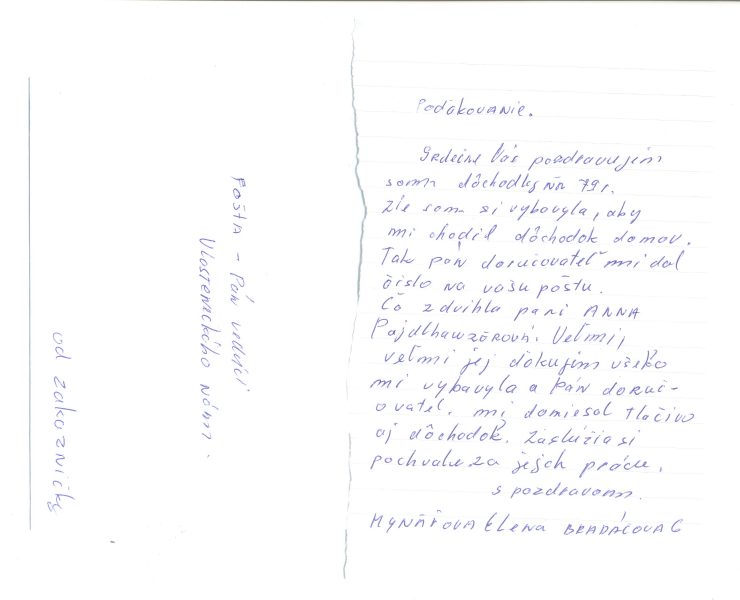 od zakazničky
Pošta - Pán vedúci
Vlasteneckého nám.
Poďakovanie.
Srdečne Vás pozdravujem
somm dôchodkyňa 79r.
Zle som si vybavyla, aby
mi chodil dôchodok domov.
Tak pán doručovateľ mi dal
číslo na vašu poštu.
Čo zdvihla pani ANNA
Veľmi,
veľmi jej ďakujem všetko
mi vybavyla a Pán doruč-
ovateľ. mi doniesol tlačivo
aj dôchodok. Zaslúžia si
pochvalu za jejch prácu.
s pozdravom.
Elena